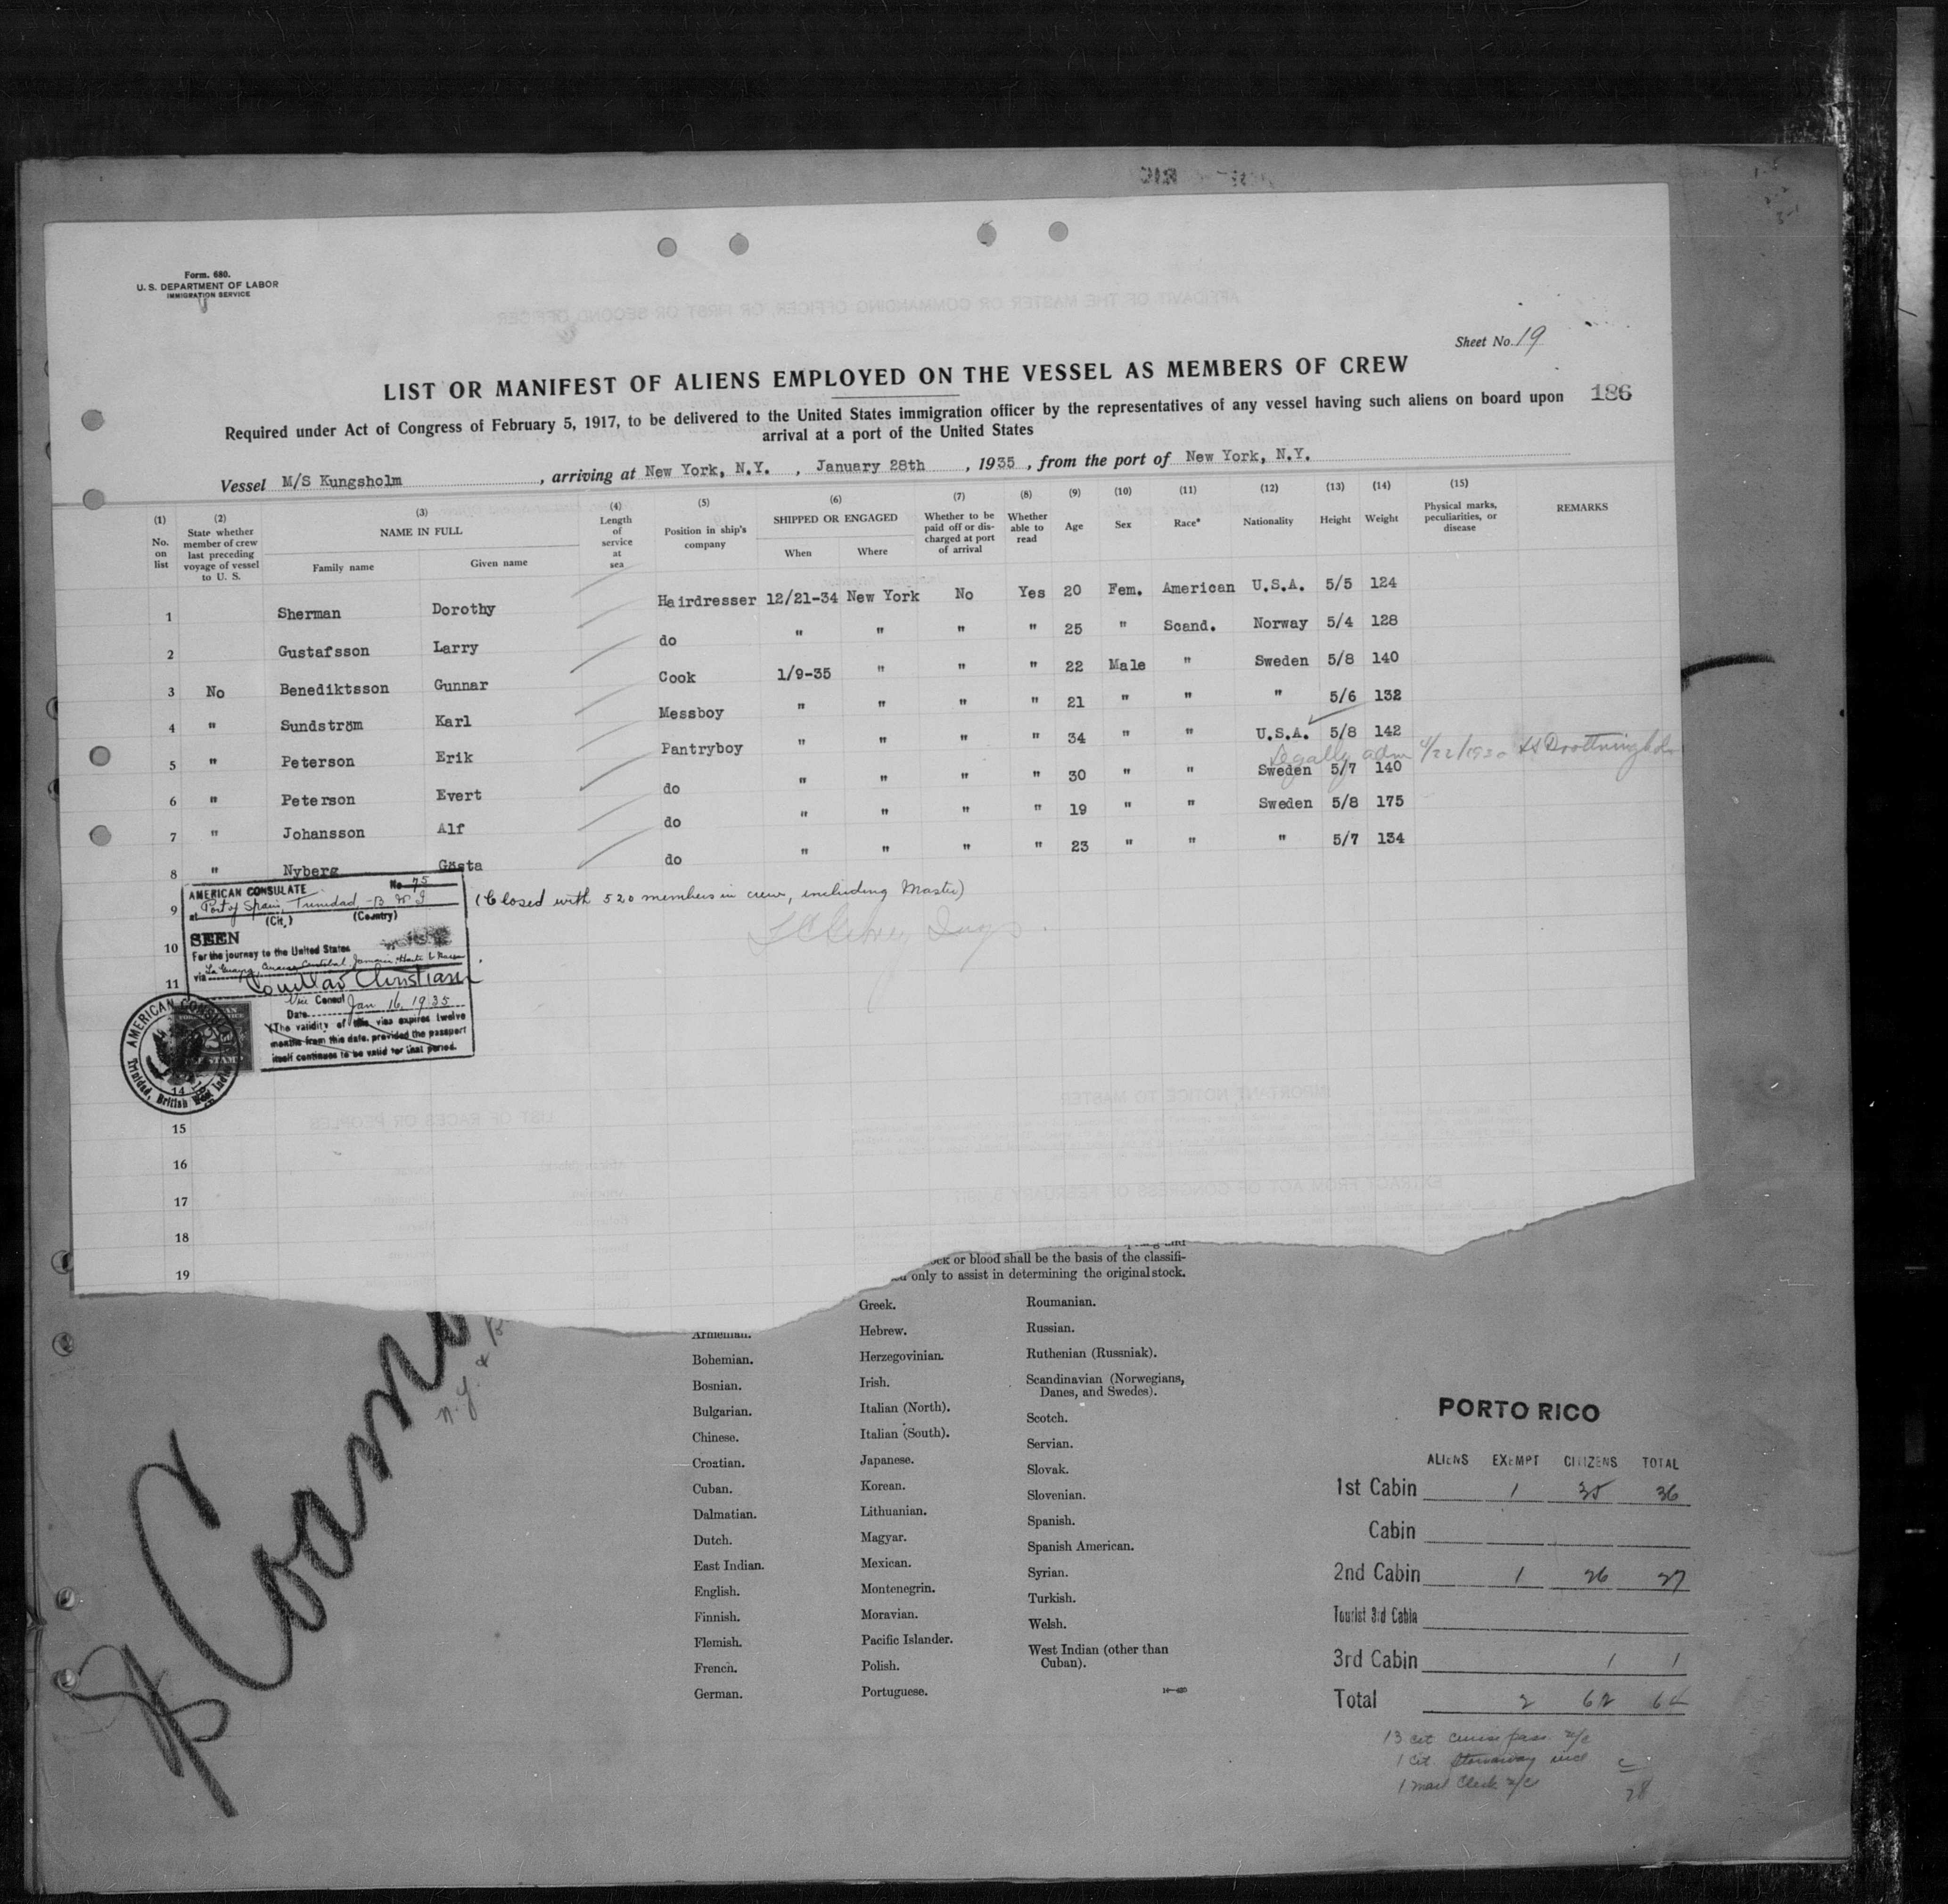 Form. 680.
U. S. DEPARTMENT OF LABOR
IMMIGRATION SERVICE
Sheet No. 19
LIST OR MANIFEST OF ALIENS EMPLOYED ON THE VESSEL AS MEMBERS OF CREW
186
Required under Act of Congress of February 5, 1917, to be delivered to the United States immigration officer by the representatives of any vessel having such aliens on board upon
arrival at a port of the United States
Vessel M/S Kungsholm, arriving at New York, N.Y., January 28th, 1935, from the port of New York, N.Y.
(1) No. on list (2) State whether member of crew last preceding voyage of vessel to U. S. (3) NAME IN FULL Family name Given name (4) Length of service at sea (5) Position in ship's company (6) SHIPPED OR ENGAGED When Where (7) Whether to be paid off or discharged at port of arrival (8) Whether able to read (9) Age (10) Sex (11) Race* (12) Nationality (13) Height (14) Weight (15) Physical marks, peculiarities, or disease REMARKS
1 Sherman Dorothy Hairdresser 12/21-34 New York No Yes 20 Fem. American U.S.A. 5/5 124
2 Gustafsson Larry do " " " " 25 " Scand. Norway 5/4 128
3 No Benediktsson Gunnar Cook 1/9-35 " " " 22 Male " Sweden 5/8 140
4 " Sundström Karl Messboy " " " " 21 " " " 5/6 132
5 " Peterson Erik Pantryboy " " " " 34 " " U.S.A. 5/8 142
Legally adm 4/22/1930 SS Drottningholm
6 " Peterson Evert do " " " " 30 " " Sweden 5/7 140
7 " Johansson Alf do " " " " 19 " " Sweden 5/8 175
8 " Nyberg Gösta do " " " " 23 " " " 5/7 134
9 (Closed with 520 members in crew, including Master)
10
11
AMERICAN CONSULATE No 75
at Port of Spain, Trinidad, B W I
(City) (Country)
SEEN
For the journey to the United States
via La Guayra
Christian
Vice Consul
Date Jan 16, 1935
(The validity of this visa expires twelve
months from this date, provided the passport
itself continues to be valid for that period.
AMERICAN CONSULATE
Trinidad, British West Indies
15
16
17
18
19
ock or blood shall be the basis of the classifi-
only to assist in determining the original stock.
Armenian.
Bohemian.
Bosnian.
Bulgarian.
Chinese.
Croatian.
Cuban.
Dalmatian.
Dutch.
East Indian.
English.
Finnish.
Flemish.
French.
German.
Greek.
Hebrew.
Herzegovinian.
Irish.
Italian (North).
Italian (South).
Japanese.
Korean.
Lithuanian.
Magyar.
Mexican.
Montenegrin.
Moravian.
Pacific Islander.
Polish.
Portuguese.
Roumanian.
Russian.
Ruthenian (Russniak).
Scandinavian (Norwegians,
Danes, and Swedes).
Scotch.
Servian.
Slovak.
Slovenian.
Spanish.
Spanish American.
Syrian.
Turkish.
Welsh.
West Indian (other than
Cuban).
PORTO RICO
ALIENS EXEMPT CITIZENS TOTAL
1st Cabin 1 35 36
Cabin
2nd Cabin 1 26 27
Tourist 3rd Cabin
3rd Cabin 1 1
Total 2 62 64
13 cit cruise pass
1 cit stowaway incl
1 Mail Clerk